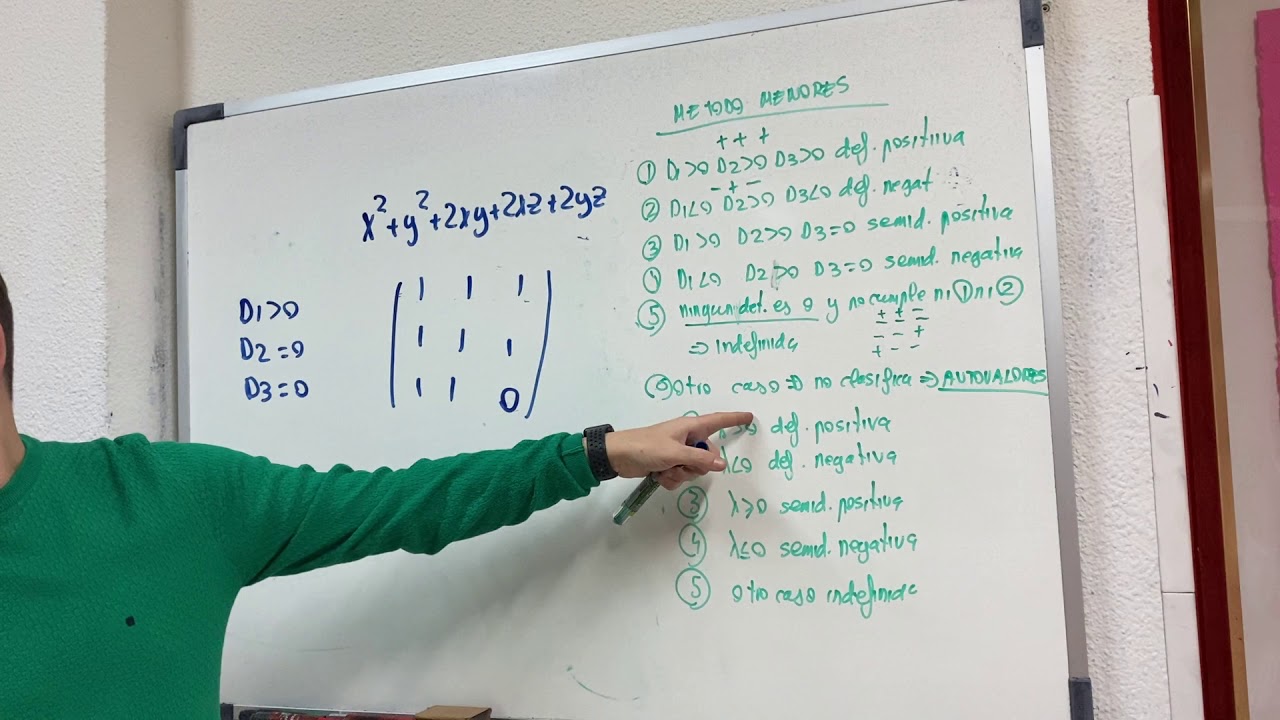 x²+y²+2xy+2xz+2yz
D1>0
D2=0
D3=0
1 1 1
1 1 1
1 1 0
METODO MENORES
+ + +
① D1>0 D2>0 D3>0 def. positiva
- + -
② D1<0 D2>0 D3<0 def. negat
③ D1>0 D2>0 D3=0 semid. positiva
④ D1<0 D2>0 D3=0 semid. negativa
⑤ ningun det. es 0 y no cumple ni ① ni ②
⇒ indefinida
+ + -
- - +
+ - -
⑥ Otro caso ⇒ no clasifica ⇒ AUTOVALORES
λ>0 def. positiva
λ<0 def. negativa
③ λ≥0 semid. positiva
④ λ≤0 semid. negativa
⑤ otro caso indefinida